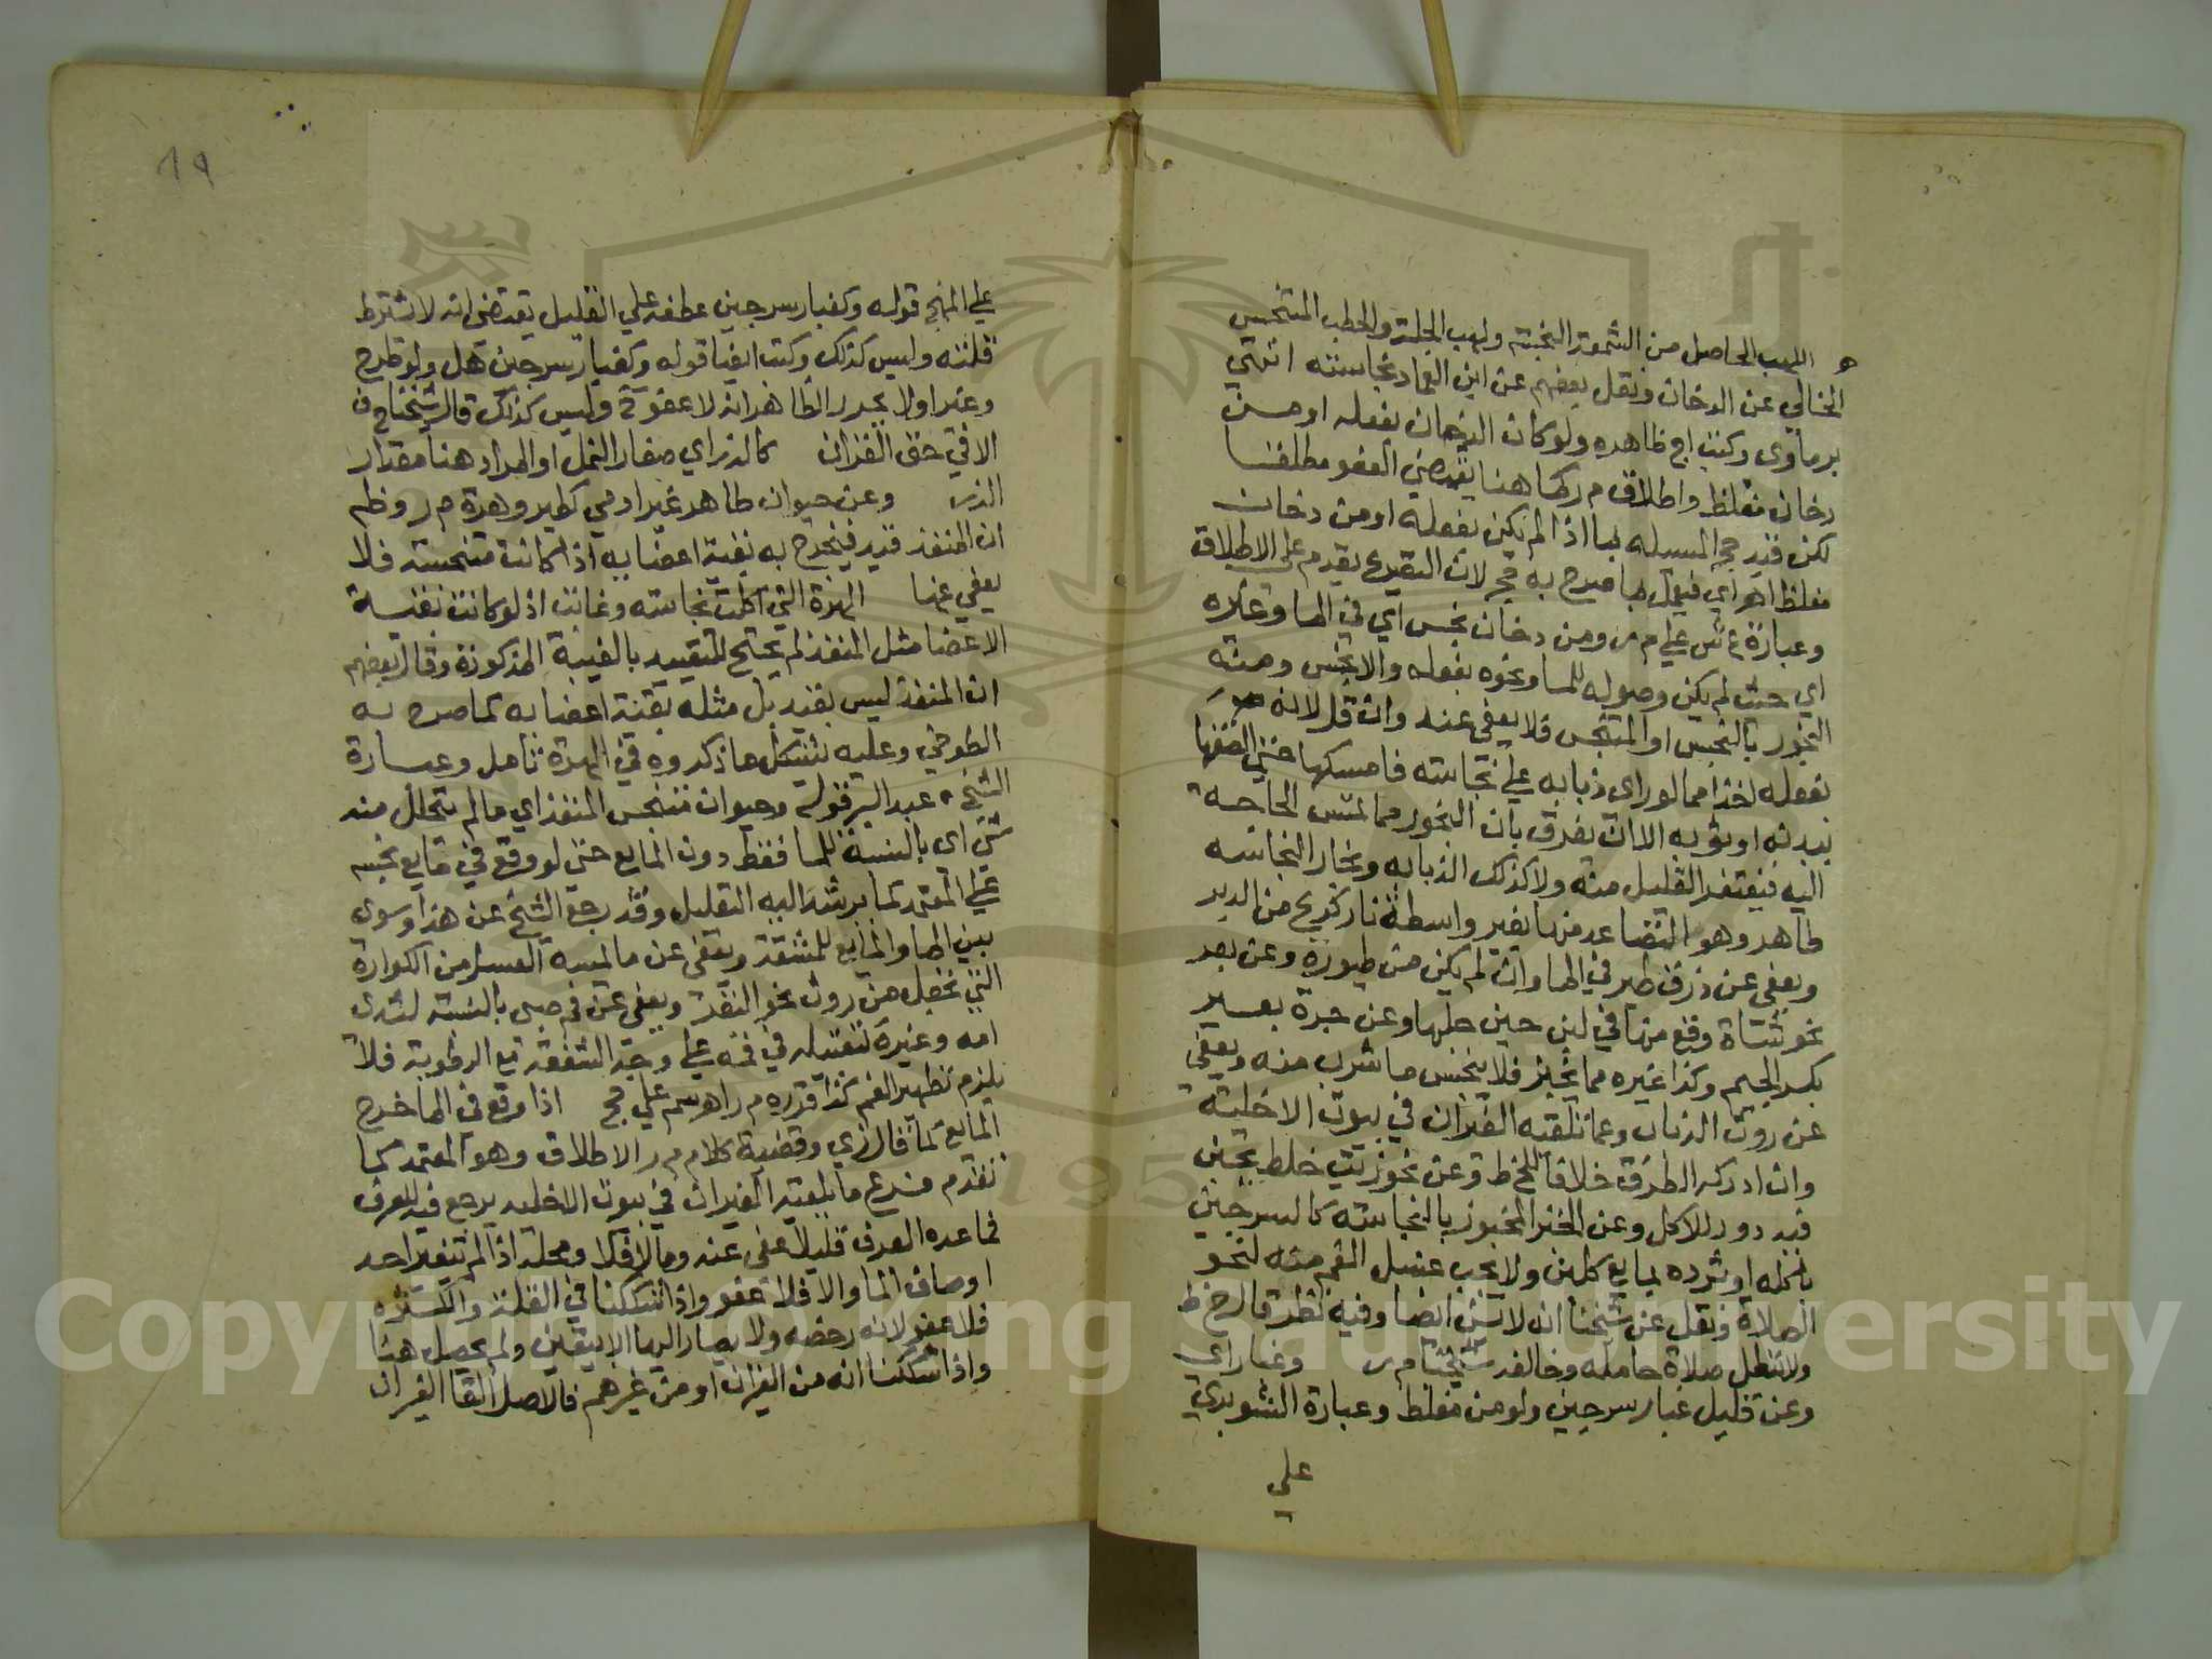 اللهب الحاصل من الشمعة النجسة ولهب الجلة والحطب المتنجس
الخالي عن الدخان ونقل بعضهم عن ابن العماد نجاسته انتهي
برماوي وكتب اج ظاهره ولو كان الدخان بفعله او من
دخان مغلظ واطلاق م ر كما هنا يقتضي العفو مطلقا
لكن قيد حج المسيله بما اذا لم يكن بفعله او من دخان
مغلظ اهر اي فيعمل بما صرح به حج لان التقييد يقدم علي الاطلاق
وعبارة ع ش علي م ر ومن دخان نجس اي في الما وغيره
اي حيث لم يكن وصوله للما ونحوه بفعله والا نجس ومنه
البخور بالنجس او المتنجس فلا يعفي عنه وان قل لانه
بفعله اخذا مما لو راي ذبابه علي نجاسته فامسكها حتي الصقها
ببدنه او ثوبه الا ان يفرق بان البخور مما تمس الحاجة
اليه فيغتفر القليل منه ولا كذلك الذبابه وبخار النجاسه
طاهر وهو المتصاعد منها بغير واسطة نار كريح من الدبر
ويعفي عن ذرق طير في الما وان لم يكن من طيوره وعن بعر
نحو شاة وقع منها في لبن حين حلبها وعن جرة بعير
بكسر الجيم وكذا غيره مما يجتر فلا ينجس ما شرب منه ويعفي
عن روث الذباب وعما تلقيه الفيران في بيوت الاخلية
وان ادركه الطرف خلافا للخ ط وعن نحو زيت خلط بجبن
فيه دود للاكل وعن الخبز المخبوز بالنجاسه كالسرجين
باكله او ثرده بمايع كلبن ولا يجب غسل الفم منه لنحو
الصلاة ونقل عن شيخنا انه لا سن ايضا وفيه نظر قال خ ط
ولا تبطل صلاة حامله وخالفه شيخنا م ر وغباراي
وعن قليل غبار سرجين ولو من مغلظ وعبارة الشوبري
علي
19
علي المنهج قوله وكغبار سرجين عطفه علي القليل يقتضي انه لا يشترط
قلته وليس كذلك وكتب ايضا قوله وكغبار سرجين هل ولو طرح
وغيرا ولا يحرر الظاهر انه لا عفو وليس كذلك قال شيخنا ح ف
الا في حق الفران كالذر اي صغار النمل او المراد هنا مقدار
الذر وعن حيوان طاهر غير ادمي كطير وهرة م ر وظم
ان المنفذ قيد فيخرج به بقية اعضايه اذا كانت متنجسة فلا
يعفي عنها الهرة التي اكلت نجاسته وغابت اذ لو كانت بقية
الاعضا مثل المنفذ لم يحتج للتقييد بالغيبة المذكورة وقال بعضهم
ان المنفذ ليس بقيد بل مثله بقية اعضايه كما صرح به
الطوخي وعليه يشكل ما ذكروه في الهرة تامل وعبارة
الشيخ عبد البر قوله وحيوان متنجس المنفذ اي ما لم يتحلل منه
شي اي بالنسبة للما فقط دون المايع حتي لو وقع في مايع نجسه
علي المعتمد كما يرشد اليه التعليل وقد رجع الشيخ عن هذا وسوي
بين الما والمايع للمشقة ويعفي عن ما يمسه العسل من الكوارة
التي تجعل من روث نحو البقر ويعفي عن فم صبي بالنسبة لثدي
امه وغيره كتقبيله في فمه علي وجه الشفقة مع الرطوبة فلا
يلزم تطهير الفم كذا قرره م ر اهر سم علي حج اذا وقع في الما خرج
المايع كما قال زي وقضية كلام م ر الاطلاق وهو المعتمد كما
تقدم فرع ما يلقيه الفيران في بيوت الاخليه يرجع فيه للعرف
فما عده العرف قليلا عفي عنه وما لا فلا ومحله اذا لم يتغير احد
اوصاف الما والا فلا عفو واذا شككنا في القلة والكثره
فلا عفو لانه رخصه ولا يصار اليها الا بيقين ولم يحصل هنا
واذا شككنا انه من الفيران او من غيرهم فالاصل القا الفيران